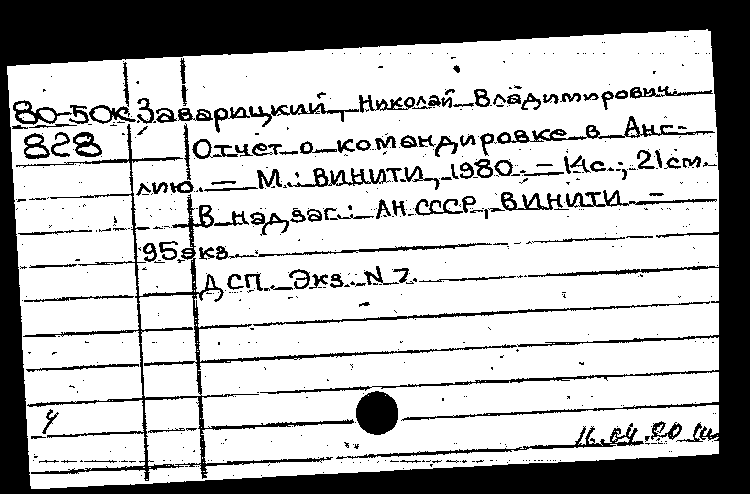 80-50к Заварицкий, Николай Владимирович.
828 Отчет о командировке в Анг-
лию. – М.: ВИНИТИ, 1980. – 14с.; 21см.
В надзаг.: АН СССР, ВИНИТИ –
95экз
ДСП. Экз. N 7.
16.04.80